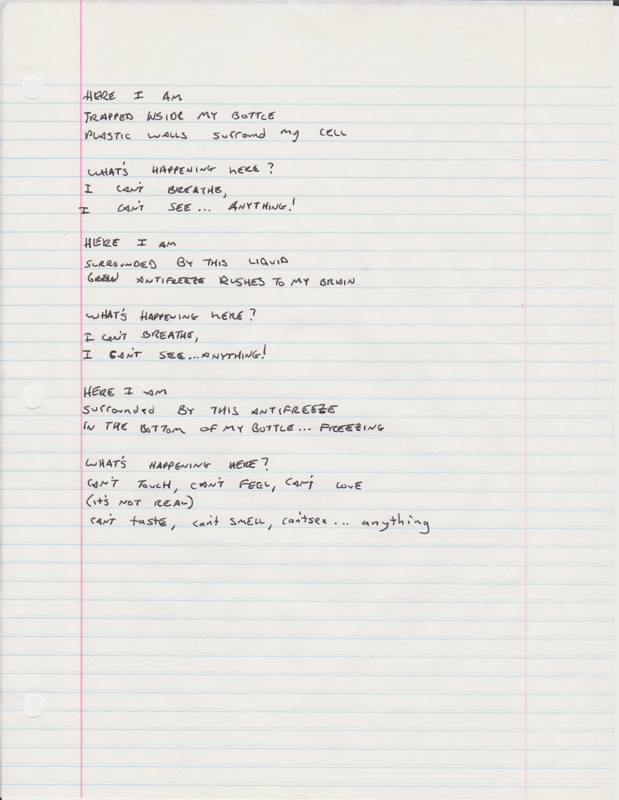 HERE I AM
TRAPPED INSIDE MY BOTTLE
PLASTIC WALLS surround my CELL
WHAT'S HAPPENING HERE?
I CAN'T BREATHE,
I CAN'T SEE... ANYTHING!
HERE I AM
SURROUNDED BY THIS LIQUID
GREEN ANTIFREEZE RUSHES TO MY BRAIN
WHAT'S HAPPENING HERE?
I CAN'T BREATHE,
I CAN'T SEE... ANYTHING!
HERE I AM
surrounded BY THIS ANTIFREEZE
IN THE BOTTOM OF MY BOTTLE... FREEZING
WHAT'S HAPPENING HERE?
CAN'T TOUCH, CAN'T FEEL, CAN'T LOVE
(IT'S NOT REAL)
CAN'T tasTE, can't SMELL, can't see... anything